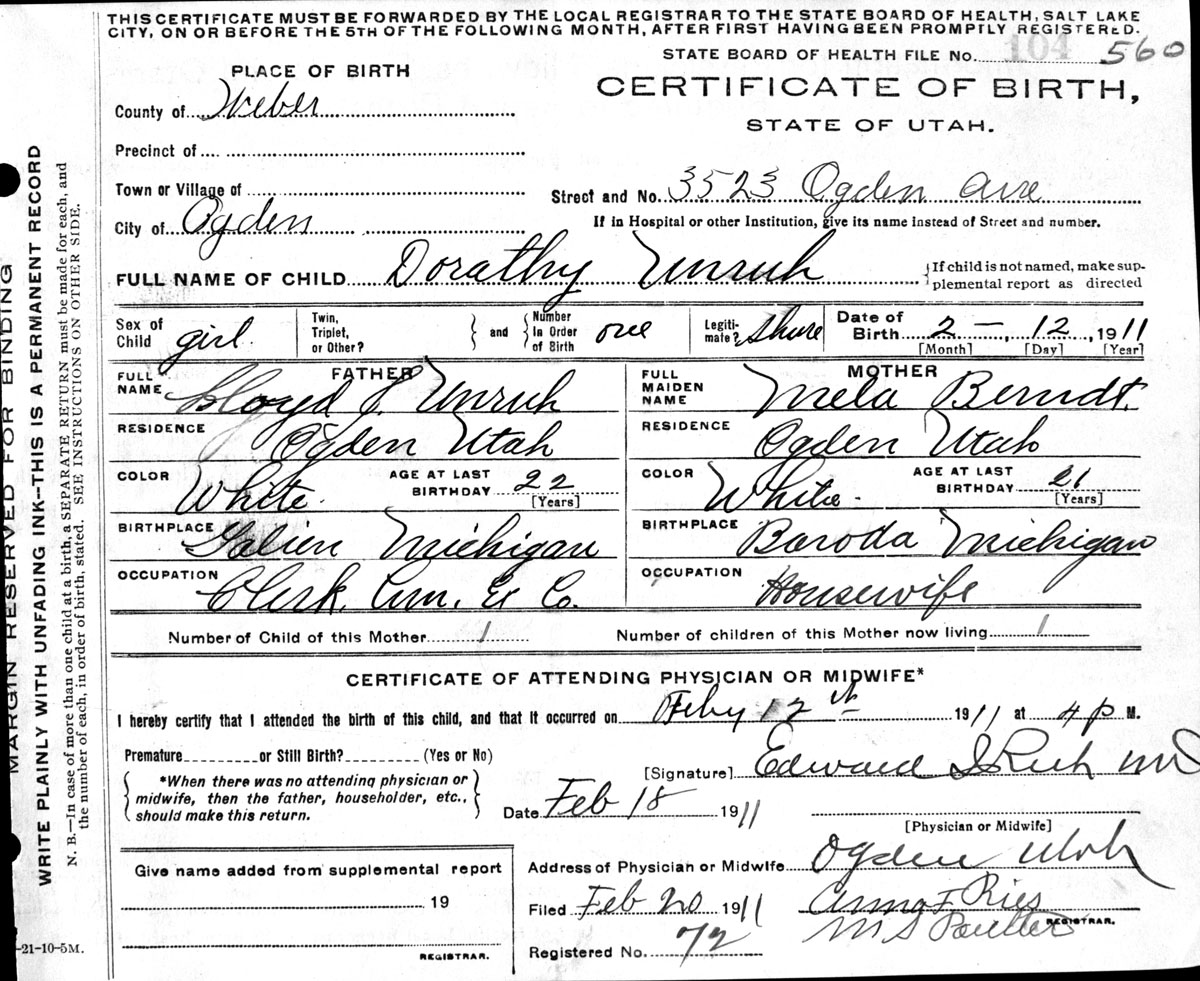 THIS CERTIFICATE MUST BE FORWARDED BY THE LOCAL REGISTRAR TO THE STATE BOARD OF HEALTH, SALT LAKE
CITY, ON OR BEFORE THE 5TH OF THE FOLLOWING MONTH, AFTER FIRST HAVING BEEN PROMPTLY REGISTERED.
STATE BOARD OF HEALTH FILE No. 104 560
PLACE OF BIRTH
CERTIFICATE OF BIRTH,
STATE OF UTAH.
County of Weber
Precinct of
Town or Village of
Street and No. 3523 Ogden Ave
City of Ogden
If in Hospital or other Institution, give its name instead of Street and number.
FULL NAME OF CHILD Dorathy Unruh
{If child is not named, make sup-
plemental report as directed
Sex of Child girl
Twin, Triplet, or Other?
and
Number In Order of Birth one
Legiti-mate?
Date of Birth 2 - 12, 1911
[Month] [Day] [Year]
FATHER
FULL NAME Lloyd J. Unruh
MOTHER
FULL MAIDEN NAME Mela Berndt.
RESIDENCE Ogden Utah
RESIDENCE Ogden Utah
COLOR White. AGE AT LAST BIRTHDAY 22 [Years]
COLOR White. AGE AT LAST BIRTHDAY 21 [Years]
BIRTHPLACE Galien Michigan
BIRTHPLACE Baroda Michigan
OCCUPATION Clerk. Am. Ex Co.
OCCUPATION Housewife
Number of Child of this Mother 1
Number of children of this Mother now living 1
CERTIFICATE OF ATTENDING PHYSICIAN OR MIDWIFE*
I hereby certify that I attended the birth of this child, and that it occurred on Feby 12th 1911 at 4 p M.
Premature or Still Birth? (Yes or No)
[Signature] Edward I Rich MD
{*When there was no attending physician or
midwife, then the father, householder, etc.,
should make this return.}
Date Feb 18 1911
[Physician or Midwife]
Give name added from supplemental report
19
REGISTRAR.
Address of Physician or Midwife Ogden Utah
Filed Feb 20 1911 Anna F Ries
M S Poulter REGISTRAR.
Registered No. 72
-21-10-5M.
MARGIN RESERVED FOR BINDING
WRITE PLAINLY WITH UNFADING INK—THIS IS A PERMANENT RECORD
N. B.—In case of more than one child at a birth, a SEPARATE RETURN must be made for each, and
the number of each, in order of birth, stated. SEE INSTRUCTIONS ON OTHER SIDE.